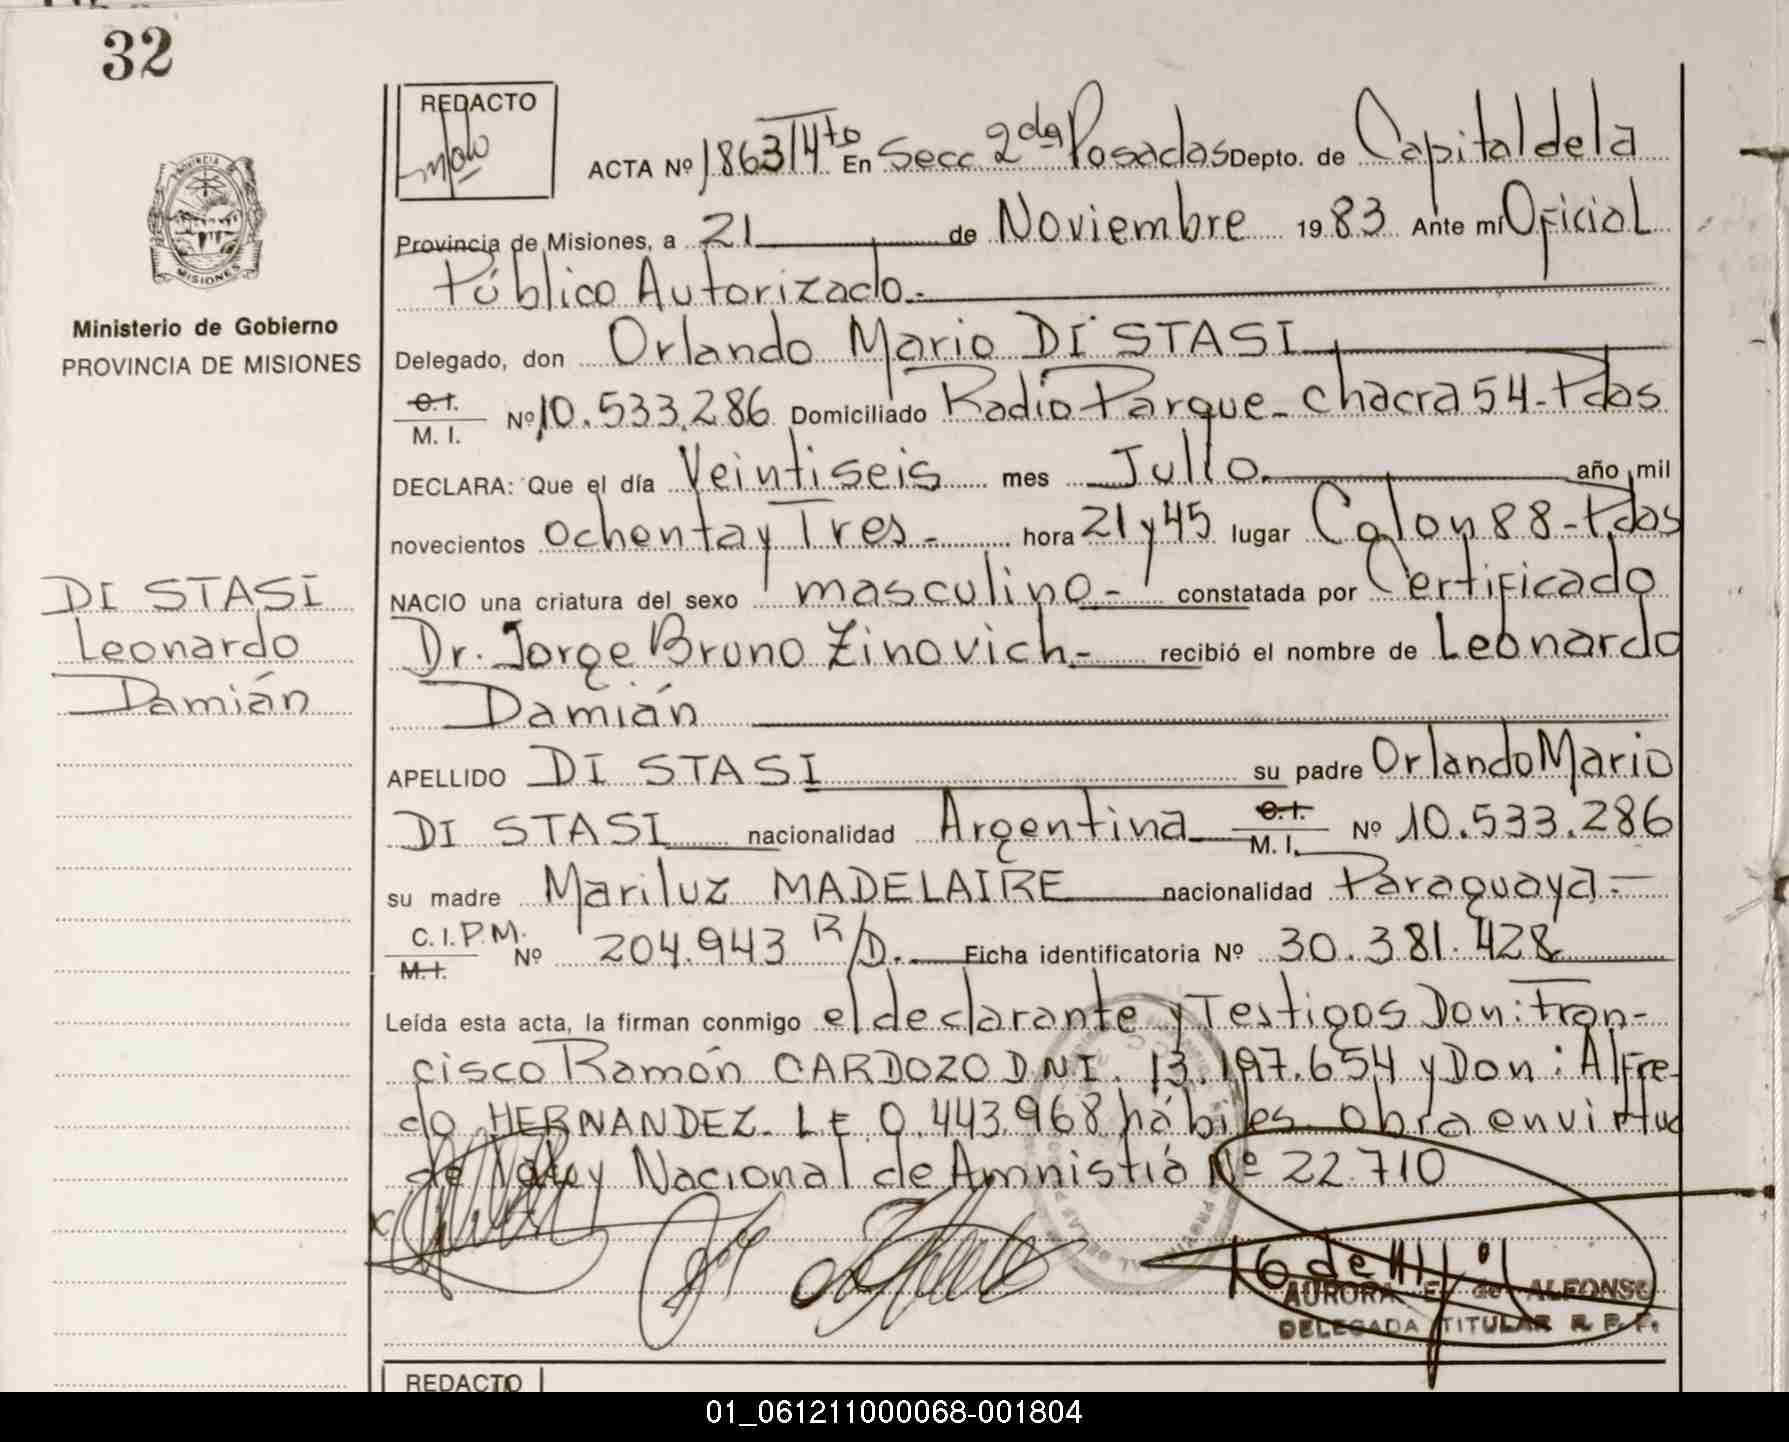 32
REDACTO
ACTA Nº 1863/4to En Secc 2da Posadas Depto. de Capital de la
Provincia de Misiones, a 21 de Noviembre 1983 Ante mí Oficial
Público Autorizado.-
PROVINCIA
MISIONES
Ministerio de Gobierno
PROVINCIA DE MISIONES
Delegado, don Orlando Mario DI STASI
C.I.
M. I. Nº 10.533.286 Domiciliado Radio Parque - chacra 54 - Pdas
DECLARA: Que el día Veintiseis mes Julio año mil
novecientos ochenta y Tres - hora 21 y 45 lugar Colon 88 - Pdas
NACIO una criatura del sexo masculino - constatada por Certificado
Dr. Jorge Bruno Zinovich - recibió el nombre de Leonardo
Damián
DI STASI
Leonardo
Damián
APELLIDO DI STASI su padre Orlando Mario
DI STASI nacionalidad Argentina C.I. M. I. Nº 10.533.286
su madre Mariluz MADELAIRE nacionalidad Paraguaya.-
C.I.P.M.
M.I. Nº 204.943 R/D. Ficha identificatoria Nº 30.381.428
Leída esta acta, la firman conmigo el declarante y Testigos Don: Fran-
cisco Ramón CARDOZO DNI. 13.197.654 y Don: Alfre-
do HERNANDEZ. LE 0.443.968 hábiles obra en virtud
de la Ley Nacional de Amnistiá Nº 22.710
AURORA E. de ALFONSO
DELEGADA TITULAR R. P. P.
REDACTO
01_061211000068-001804